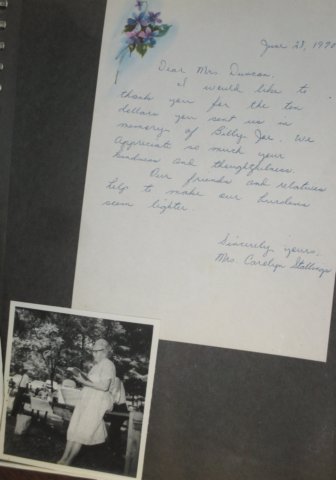 June 28, 1970
Dear Mrs. Duncan,
I would like to
thank you for the ten
dollars you sent us in
memory of Billy Joe. We
appreciate so much your
kindness and thoughtfulness.
Our friends and relatives
help to make our burdens
seem lighter.
Sincerely yours,
Mrs. Carolyn Stallings